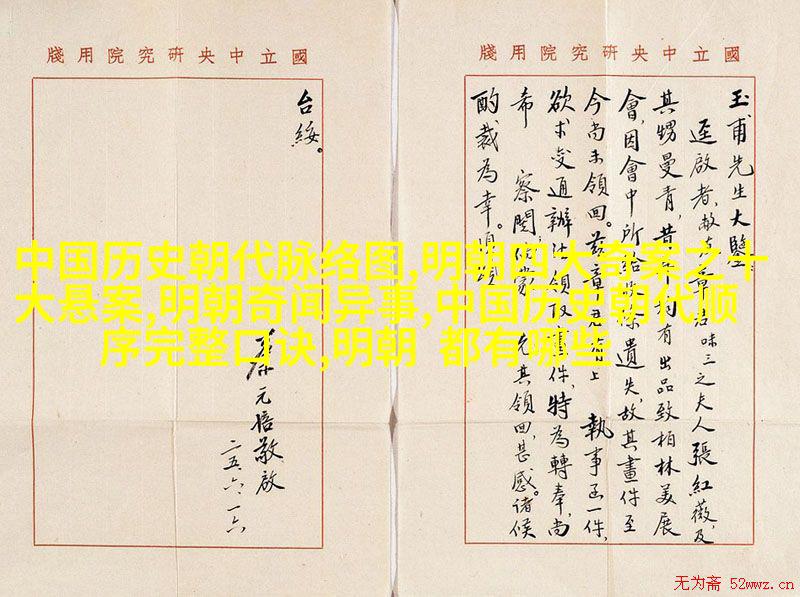 國立中央研究院用牋
玉甫先生大鑒
逕啟者,敝友章君味三之夫人張紅薇,及
其甥曼青,昔年均有出品致柏林美展
會,因會中所給收條遺失,故其畫件至
今尚未領回。茲章君有上 執事函一件,
欲求變通辦法領取件,特為轉奉,尚
希 察閱,倘蒙 允其領回,甚感。諸候
酌裁為幸。順頌
國立中央研究院用牋
台綏。
蔡元培敬啟
二五、六、一六
中国历史朝代脉络图,明朝四大奇案之十
大悬案,明朝奇闻异事,中国历史朝代顺
序完整口诀,明朝 都有哪些
无为斋 52wwz.cn